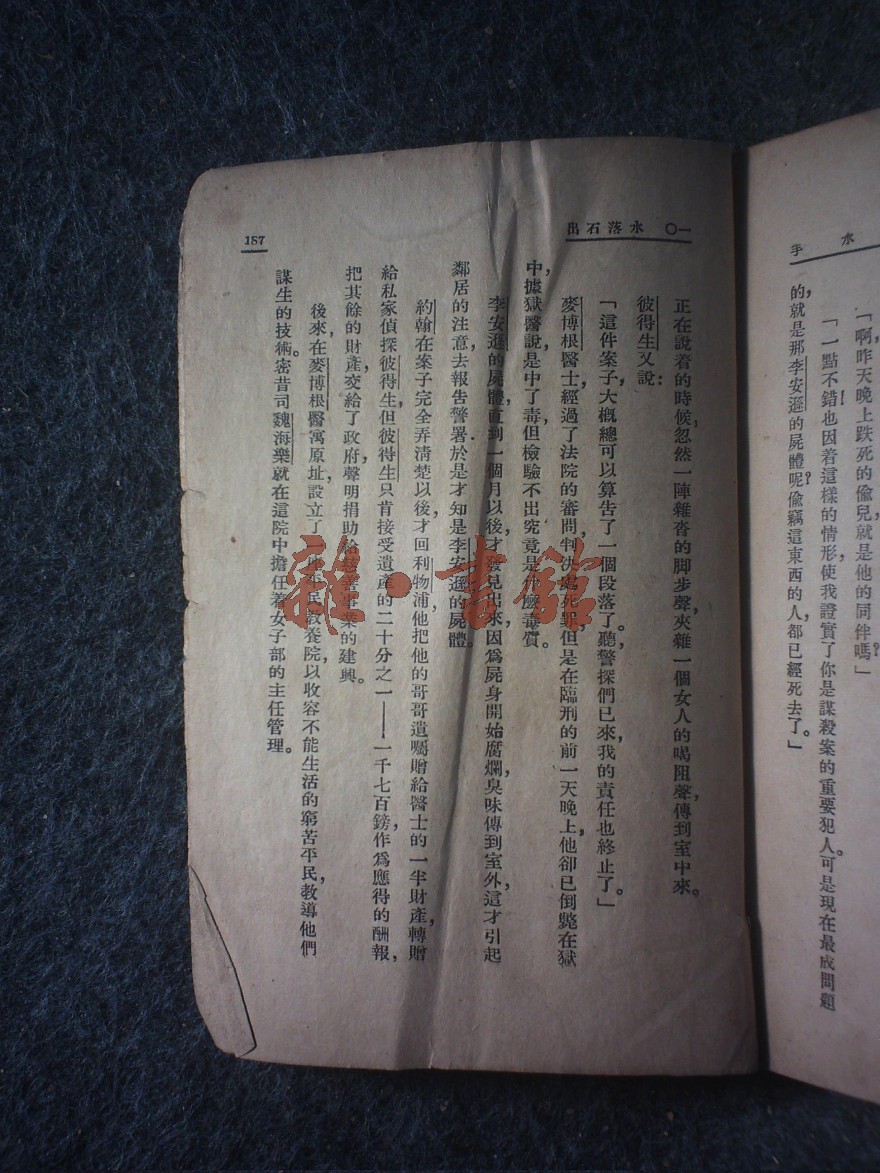 水
手
「啊，昨天晚上跌死的偷兒，就是他的同伴嗎？」
「一點不錯！也因着這樣的情形，使我證實了你是謀殺案的重要犯人。可是現在最成問題
的，就是那李安遜的屍體呢？偷竊這東西的人，都已經死去了。」
一〇 水落石出
正在說着的時候，忽然一陣雜沓的脚步聲，夾雜一個女人的喝阻聲，傳到室中來。
彼得生又說：
「這件案子，大概總可以算告了一個段落了。聽，警探們已來，我的責任也終止了。」
麥博根醫士，經過了法院的審問，判決處死罪，但是在臨刑的前一天晚上，他卻已倒斃在獄
中，據獄醫說是中了毒，但檢驗不出究竟是什麼毒質。
李安遜的屍體，直到一個月以後，才發見出來，因爲屍身開始腐爛，臭味傳到室外，這才引起
鄰居的注意，去報告警署，於是才知是李安遜的屍體。
約翰在案子完全弄清楚以後，才回利物浦，他把他的哥哥遺囑贈給醫士的一半財產，轉贈
給私家偵探彼得生，但彼得生只肯接受遺產的二十分之一——一千七百鎊，作爲應得的酬報，
把其餘的財產，交給了政府，聲明捐助給慈善事業的建興。
後來，在麥博根醫寓原址，設立了一所平民教養院，以收容不能生活的窮苦平民，教導他們
謀生的技術。密昔司魏海樂就在這院中擔任着女子部的主任管理。
187
雜·書館